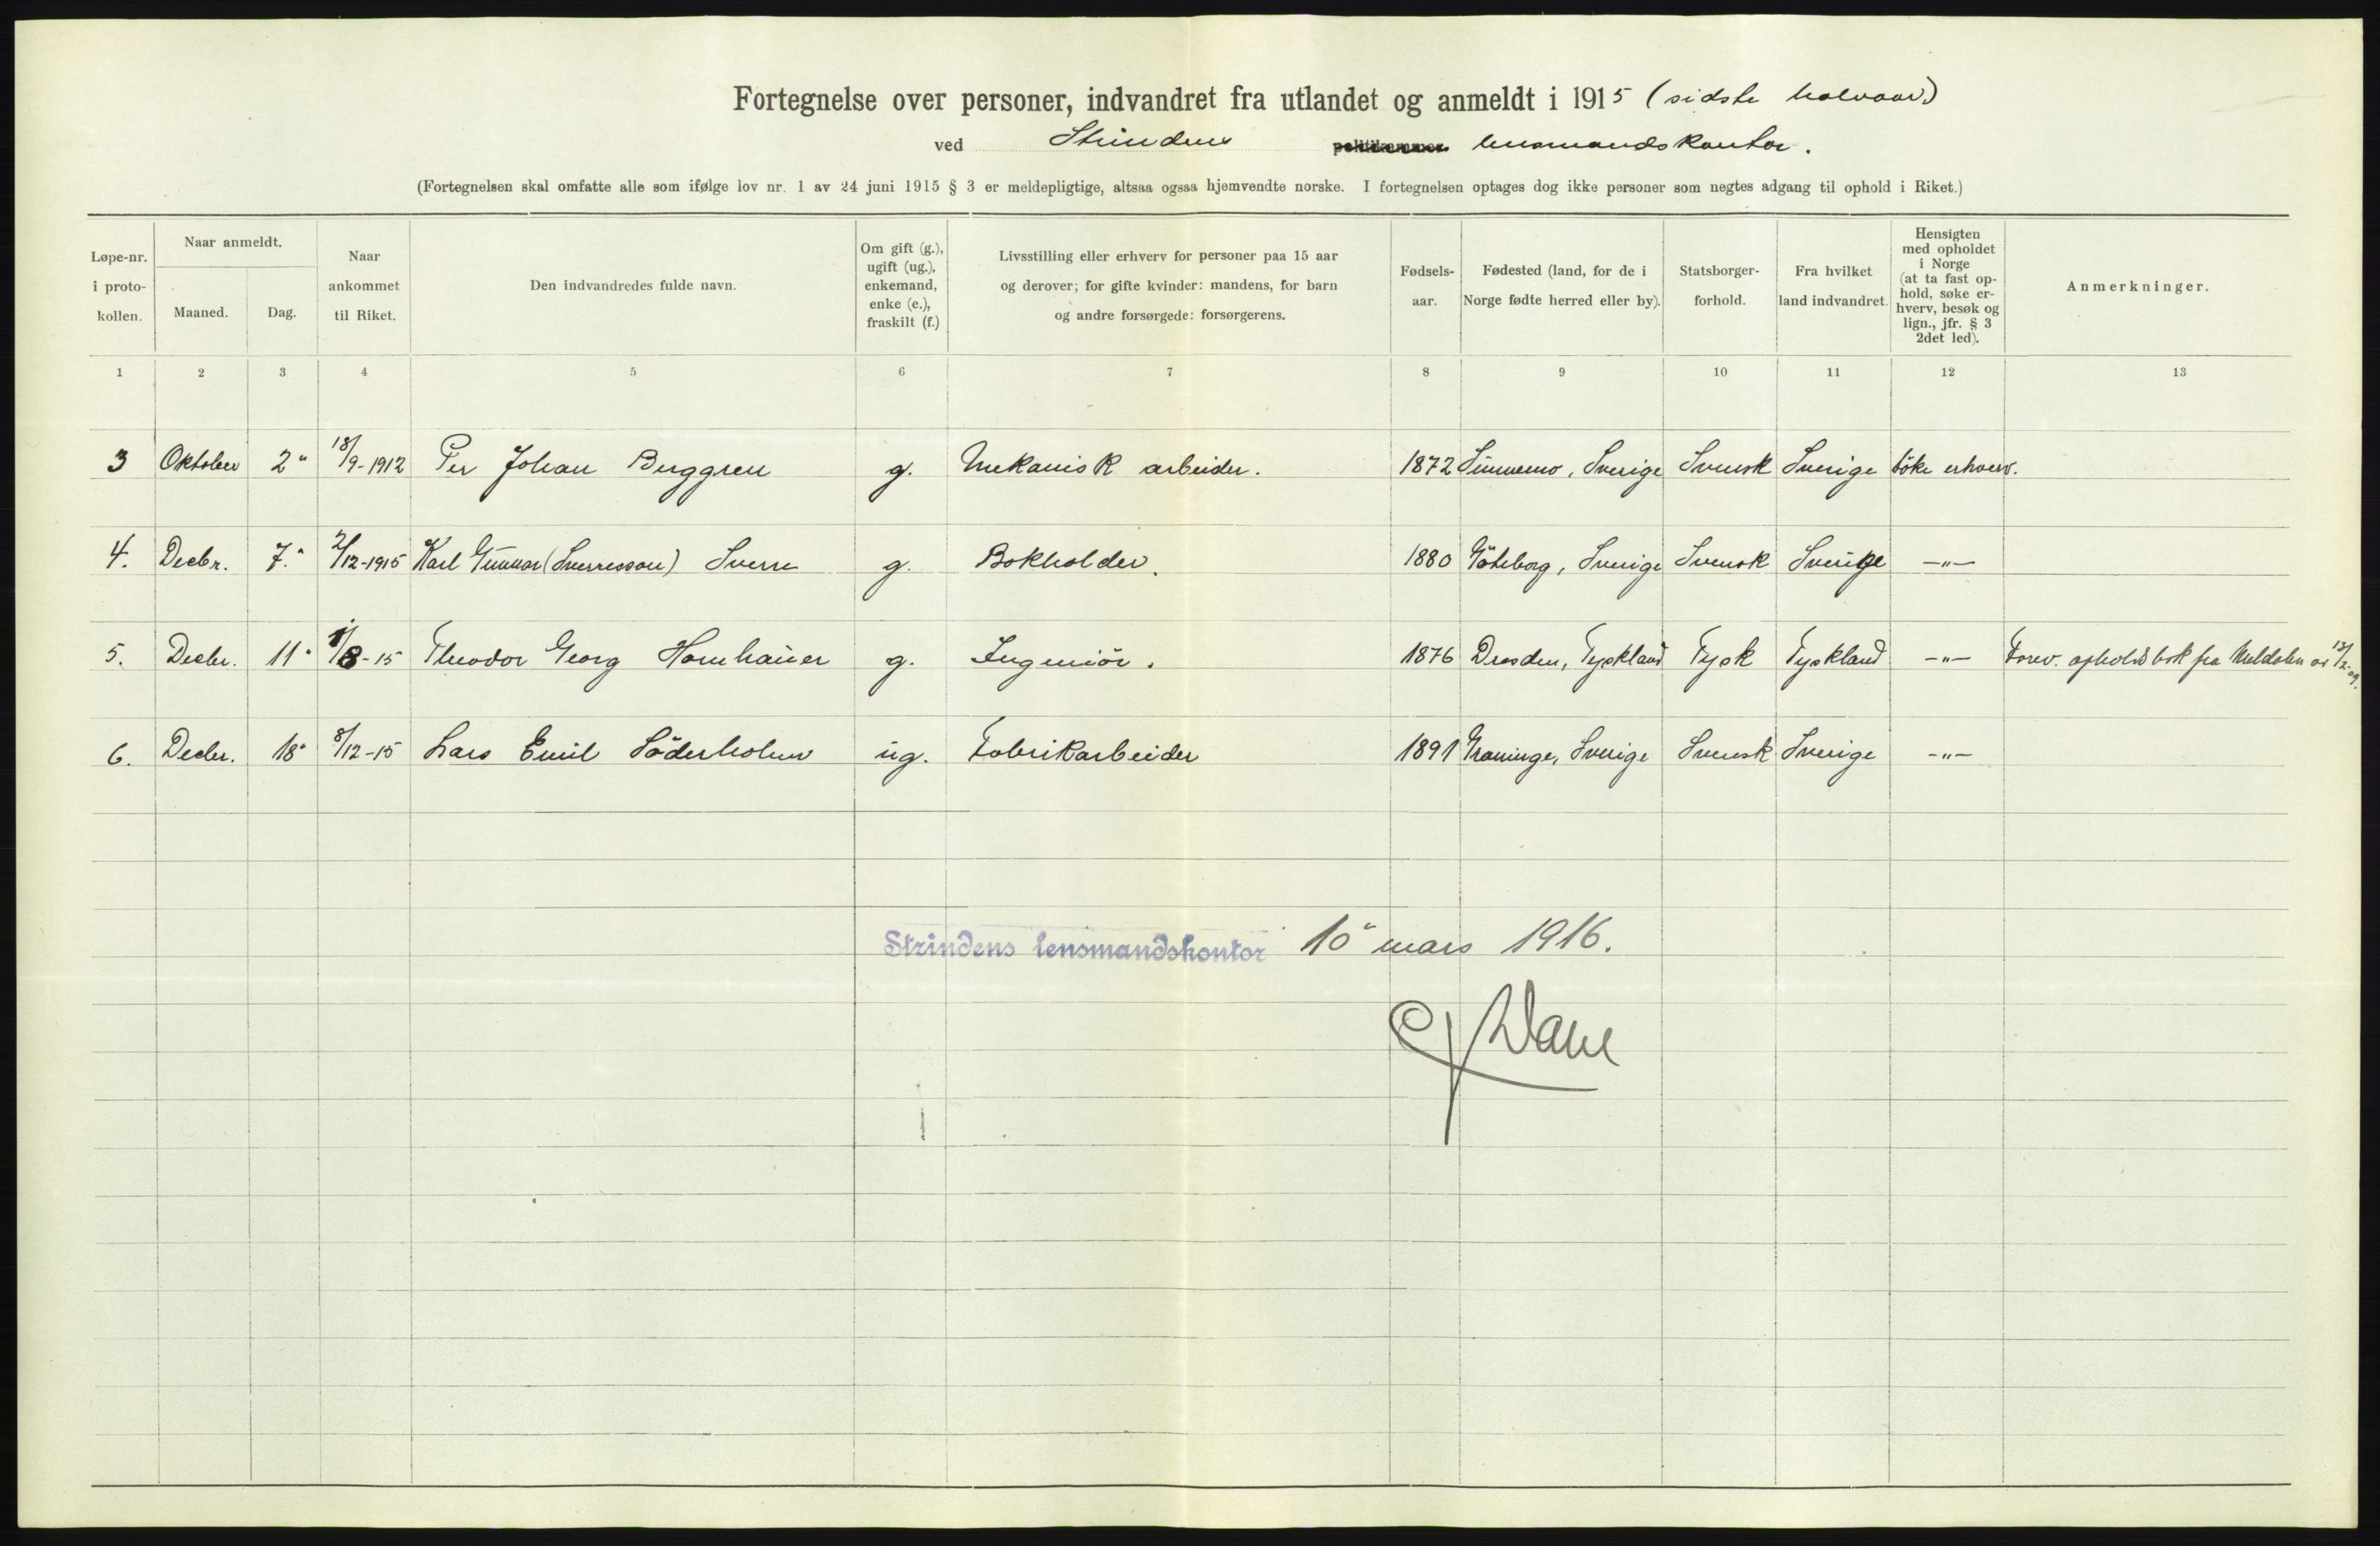 Fortegnelse over personer, indvandret fra utlandet og anmeldt i 1915 (sidste halvaar)
ved Strindens politikammer lensmandskontor.
(Fortegnelsen skal omfatte alle som ifølge lov nr. 1 av 24 juni 1915 § 3 er meldepligtige, altsaa ogsaa hjemvendte norske. I fortegnelsen optages dog ikke personer som negtes adgang til ophold i Riket.)
Løpe-nr. i proto-kollen.
Naar anmeldt.
Maaned.
Dag.
Naar ankommet til Riket.
Den indvandredes fulde navn.
Om gift (g.), ugift (ug.), enkemand, enke (e.), fraskilt (f.)
Livsstilling eller erhverv for personer paa 15 aar og derover; for gifte kvinder: mandens, for barn og andre forsørgede: forsørgerens.
Fødsels-aar.
Fødested (land, for de i Norge fødte herred eller by).
Statsborger-forhold.
Fra hvilket land indvandret.
Hensigten med opholdet i Norge (at ta fast op-hold, søke er-hverv, besøk og lign., jfr. § 3 2det led).
Anmerkninger.
1 2 3 4 5 6 7 8 9 10 11 12 13
3 Oktober 2" 18/9-1912 Per Johan Berggren g. Mekanisk arbeider. 1872 Sunnemo, Sverige Svensk Sverige søke erhverv.
4. Decbr. 7." 2/12-1915 Karl Gunnar (Sverresson) Sverre g. Bokholder. 1880 Göteborg, Sverige Svensk Sverige -"-
5. Decbr. 11" 1/8-15 Theodor Georg Hornhauer g. Ingeniör. 1876 Dresden, Tyskland Tysk Tyskland -"- Forev. opholdsbok fra Meldalen av 13/2-09.
6. Decbr. 18" 8/12-15 Lars Emil Söderholm ug. Fabrikarbeider 1891 Graninge, Sverige Svensk Sverige -"-
Strindens lensmandskontor 10" mars 1916.